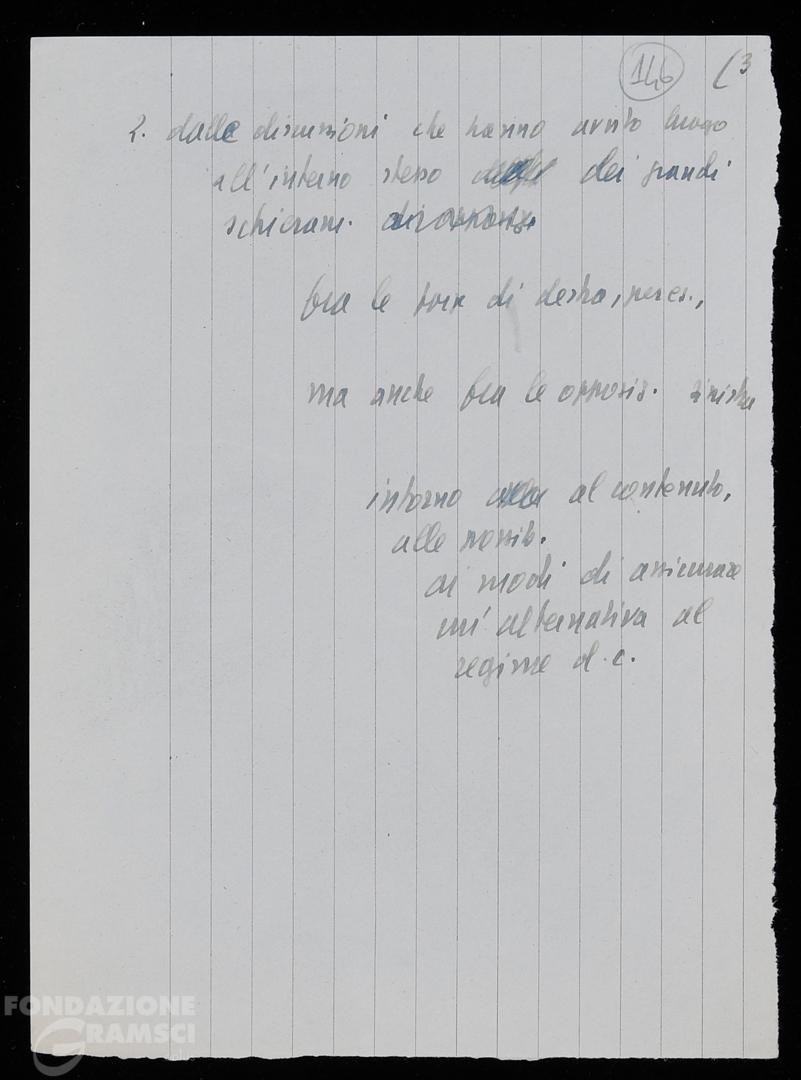 146 (3
2. dalle discussioni che hanno avuto luogo
all'interno stesso dei grandi
schieram.
fra le forze di destra,
ma anche fra le opposiz. sinistra
intorno al contenuto,
alle possib.
ai modi di assicurare
un'alternativa al
regime d.c.
FONDAZIONE
GRAMSCI